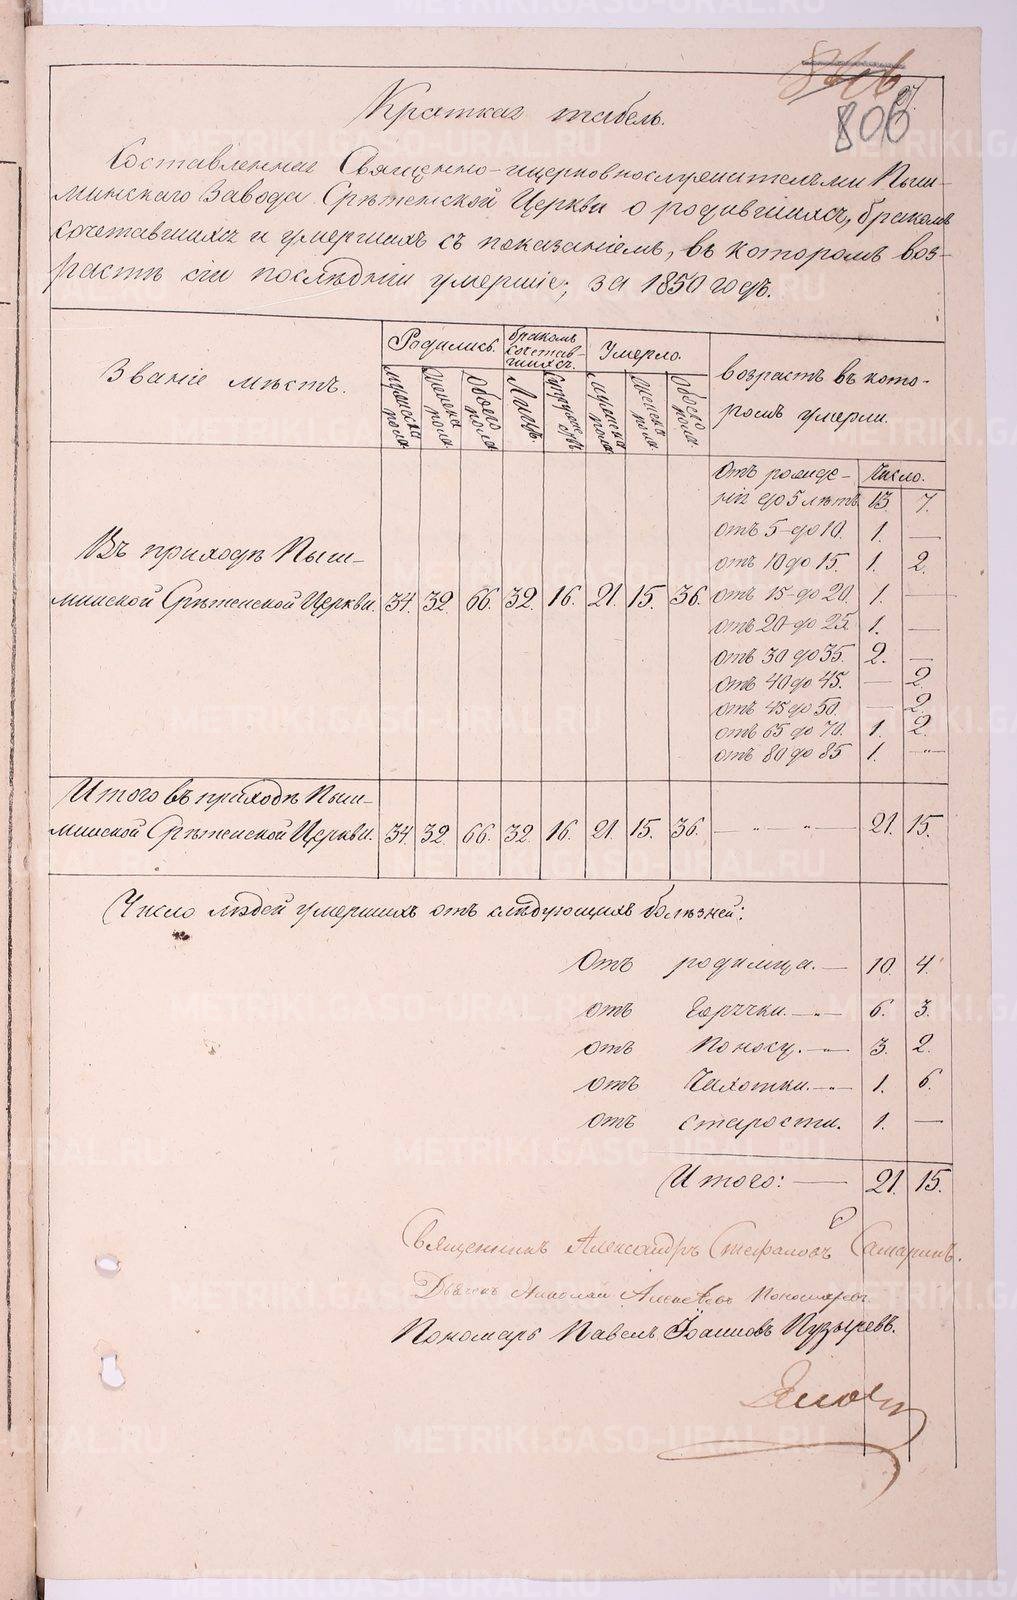 806
Краткая табель.
Составленная Священно-ицерковнослужителями Пыш-
минскаго Завода Срѣтенской Церкви о родившихся, бракомъ
сочетавшихся и умершихъ съ показаніемъ, въ которомъ воз-
растѣ сіи послѣдніи умершіе; за 1850 годъ.
Званіе мѣстъ. Родились. бракомъ сочетав-шихся. Умерло. возрастъ въ кото-
ромъ умерли.
мужеска пола женска пола Обоего пола Лицъ. Супружествъ мужеска пола женска пола. Обоего пола.
Отъ рожде- Число.
нія до 5 лѣтъ. 13. 7.
отъ 5-до 10. 1. —
отъ 10 до 15. 1. 2.
Въ приходѣ Пыш-
минской Срѣтенской Церкви. 34. 32. 66. 32. 16. 21. 15. 36. отъ 15-до 20. 1. —
отъ 20-до 25. 1. —
отъ 30 до 35. 2. —
отъ 40 до 45. — 2.
отъ 45 до 50. — 2.
отъ 65 до 70. 1. 2.
отъ 80 до 85 1. —„—
Итого въ приходѣ Пыш-
минской Срѣтенской Церкви. 34. 32. 66. 32. 16. 21. 15. 36. — „ „ — 21. 15.
Число людей умершихъ отъ слѣдующихъ болѣзней:
Отъ родимца. — 10. 4.
отъ Горячки. —„— 6. 3.
отъ Поносу. —„— 3. 2.
отъ Чахотки. —„— 1. 6.
отъ старости. 1. —
Итого: — 21. 15.
Священникъ Александръ Стефановъ Сатаринъ.
Дьячекъ Николай Алексѣевъ Пономаревъ
Пономарь Павелъ Іоанновъ Пузыревъ.
METRIKI.GASO-URAL.RU